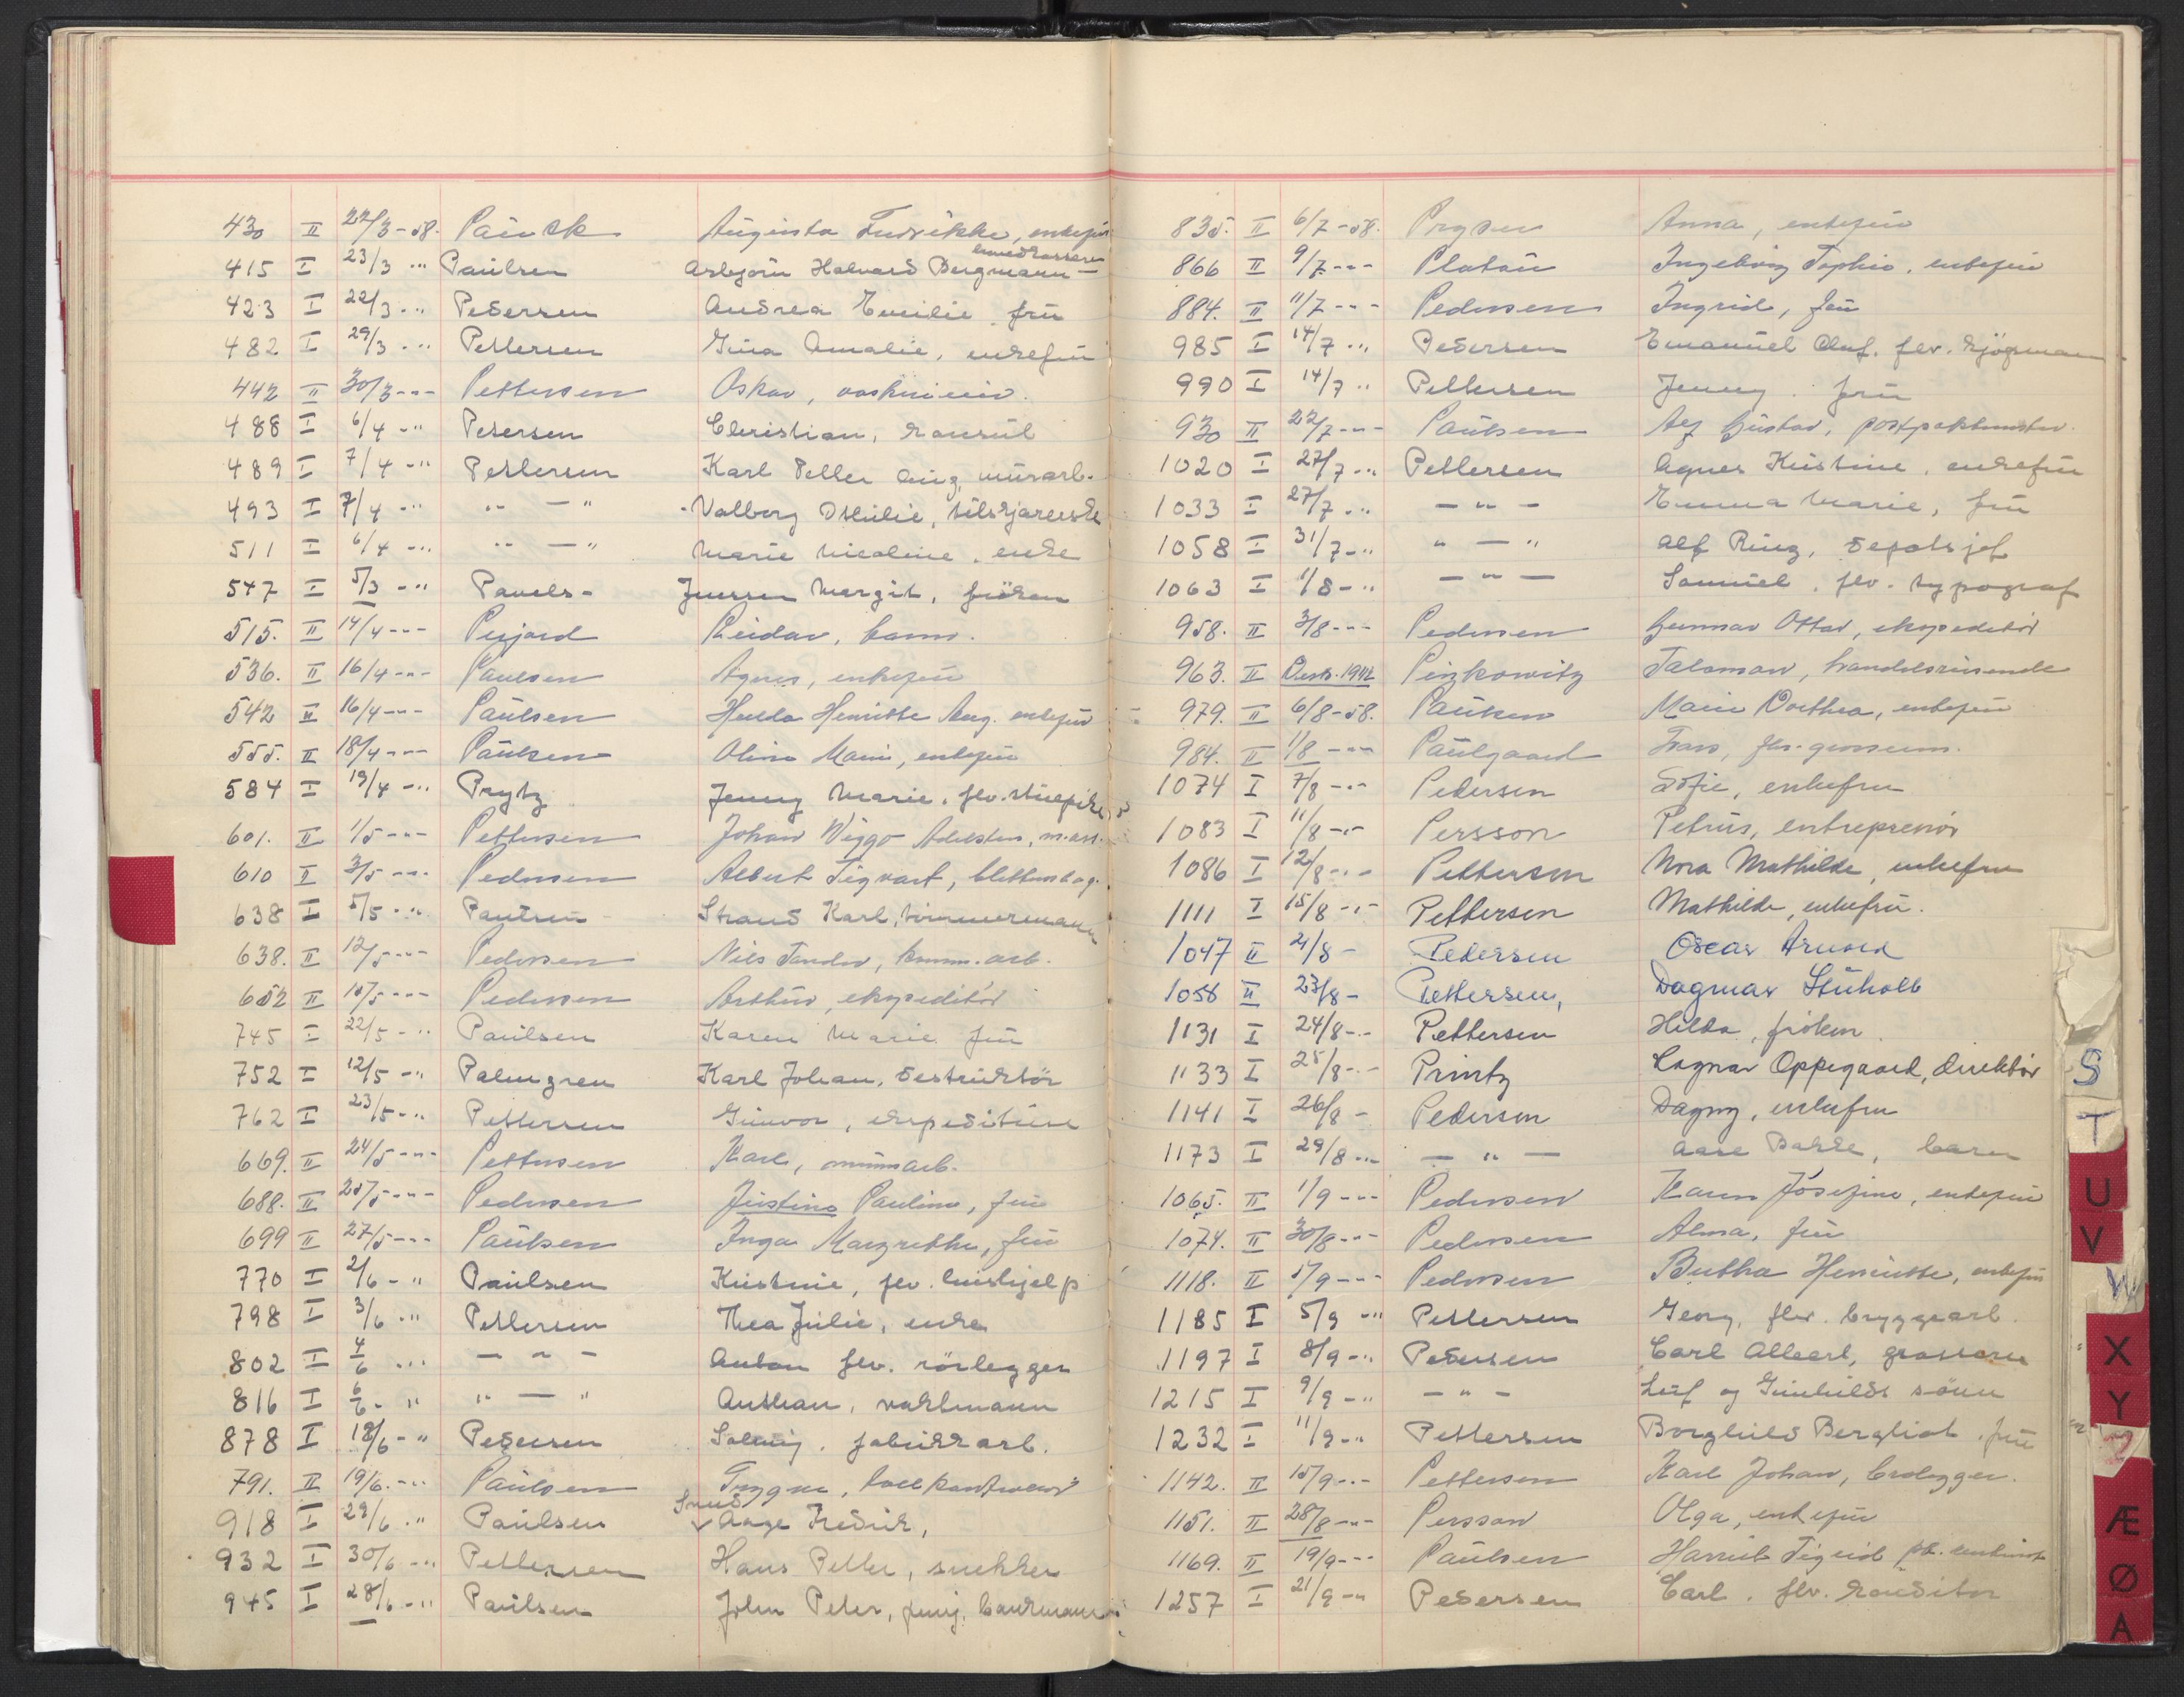 430 II 22/3-58. Augusta Fredrikke, enkefru
415 I 23/3 -" Paulsen Asbjørn Halvard Bergmann
423 I 22/3 -" Pedersen Andrea Emilie, frü
482 I 29/3 -" Pettersen Gina Amalie, enkefrü
442 II 30/3 -"- Pettersen Oskar,
488 I 6/4 -" Petersen Christian, konsül
489 I 7/4 -" Pettersen Karl Petter Aug, mürarb.
493 I 7/4 -" " — " Valborg Othilie, tilskjærerske
511 I 6/4 -" " — " Marie Nicoline, enke
547 I 5/3 -" Pavels- Jenssen Margit, frøken
515. II 14/4 -"- Reidar, barn.
536. II 16/4 -"- Paulsen Agnes, enkefrü
542 II 16/4 -"- Paulsen Hulda Henriette Aug. enkefrü
555. II 18/4 -"- Paulsen Oline Marie, enkefrü
584 I 19/4 -" Prytz Jenny Marie, flv.
601. II 1/5 -"- Pettersen Johan Wiggo
610 II 3/5 -"- Pedersen Albert Sigvart,
638 I 5/5 -" Strand Karl, tømmermann
638. II 12/5 -"- Pedersen Nils Sander, komm.arb.
652 II 15/5 -"- Pedersen Arthur, ekspeditør
745 I 22/5 -" Paulsen Karen Marie frü
752 I 12/5 -" Palmgren Karl Johan, destruktör
762 I 23/5 -" Pettersen Günvor, ekspeditrise
669. II 24/5 -"- Pettersen Karl,
688. II 25/5 -"- Pedersen Justine Pauline, frü
699 II 27/5 -"- Paulsen Inga Margrethe, frü
770 I 2/6 -" Paulsen Kristine, flv. hushjelp
798 I 3/6 -" Pettersen Thea Julie, enke
802 I 4/6 -" — " — Anton flv. rørlegger
816 I 6/6 -" " — " vaktmann
878 I 18/6 -" Pedersen Solveig, fabrikkarb.
791. II 19/6 -" Paulsen Trygve,
918 I 29/6 -" Paulsen Aage Fredrik,
932 I 30/6 -" Pettersen Hans Petter, snekker
945 I 28/6 -" Paulsen John Peter,
835. II 6/7-58. Prysen Anna, enkefrü
866 II 9/7 -"- Platou Ingeborg Sophie, enkefrü
884. II 11/7 -"- Pedersen Ingrid, frü
985 I 14/7 -" Pedersen Emanuel Oluf, flv. sjøgmann
990 I 14/7 " Pettersen Jenny, frü
930 II 22/7 -"- Paulsen Alf Gustav,
1020 I 27/7 -" Pettersen Agnes Kristine, enkefrü
1033 I 27/7 -" — " — Emma Marie, frü
1058 I 31/7 -" " — " Alf Ring, depotsjef
1063 I 1/8 -" — " — Samuel, flv. typograf
958. II 3/8 -"- Pedersen Gunnar Ottar, ekspeditör
963. II Des. 1942 Pinkowitz Salomon, handelsreisende
979. II 6/8-58. Paulsen Marie Dorthea, enkefrü
984. II 1/8 -"- Paulgaard
1074 I 7/8 -"- Pedersen Sofie, enkefru
1083 I 11/8 -"- Persson Petrus, entreprenör
1086 I 12/8 -"- Pettersen Nora Mathilde, enkefru
1111 I 15/8 -"- Pettersen Mathilde, enkefrü.
1047 II 21/8 - Pedersen Oscar Arnold
1058 II 23/8 - Pettersen, Dagmar
1131 I 24/8 -"- Pettersen Hilda, frøken
1133 I 25/8 -"- Printz Ragnar Oppegaard, direktör
1141 I 26/8 - Pedersen Dagny, enkefru
1173 I 29/8 -" — " — barn
1065. II 1/9 -"- Pedersen Karen Josefine, enkefrü
1074. II 30/8 -"- Pedersen Alma, frü
1118. II 5/9 -"- Pedersen Bertha Henriette, enkefrü
1185 I 5/9 -" Pettersen Georg, flv. bryggearb.
1197 I 8/9 -" Pedersen Carl Albert, grosserer
1215 I 9/9 -" — " — Leif og Gunhilds sønn
1232 I 11/9 -" Pettersen Borghild Bergliot, frü
1142. II 15/9 -"- Pettersen Karl Johan, brolegger.
1151. II 28/8 -"- Persson Olga, enkefrü
1169. II 19/9 -"- Paulsen Harriet Sigrid
1257 I 21/9 -" Pedersen Carl, flv. konditor
S
T
U
V
W
X
Y
Æ
Ø
A